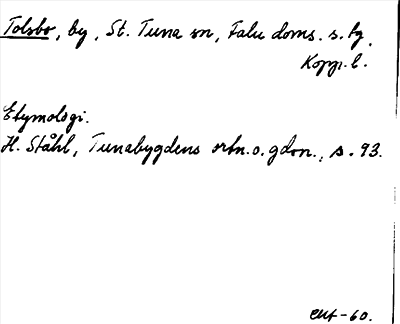 Tolsbo, by, St. Tuna sn, Falu doms. s. fg.
Kopp. l.
Etymologi.
H. Ståhl, Tunabygdens ortn. o. gdsn., s. 93.
-60.